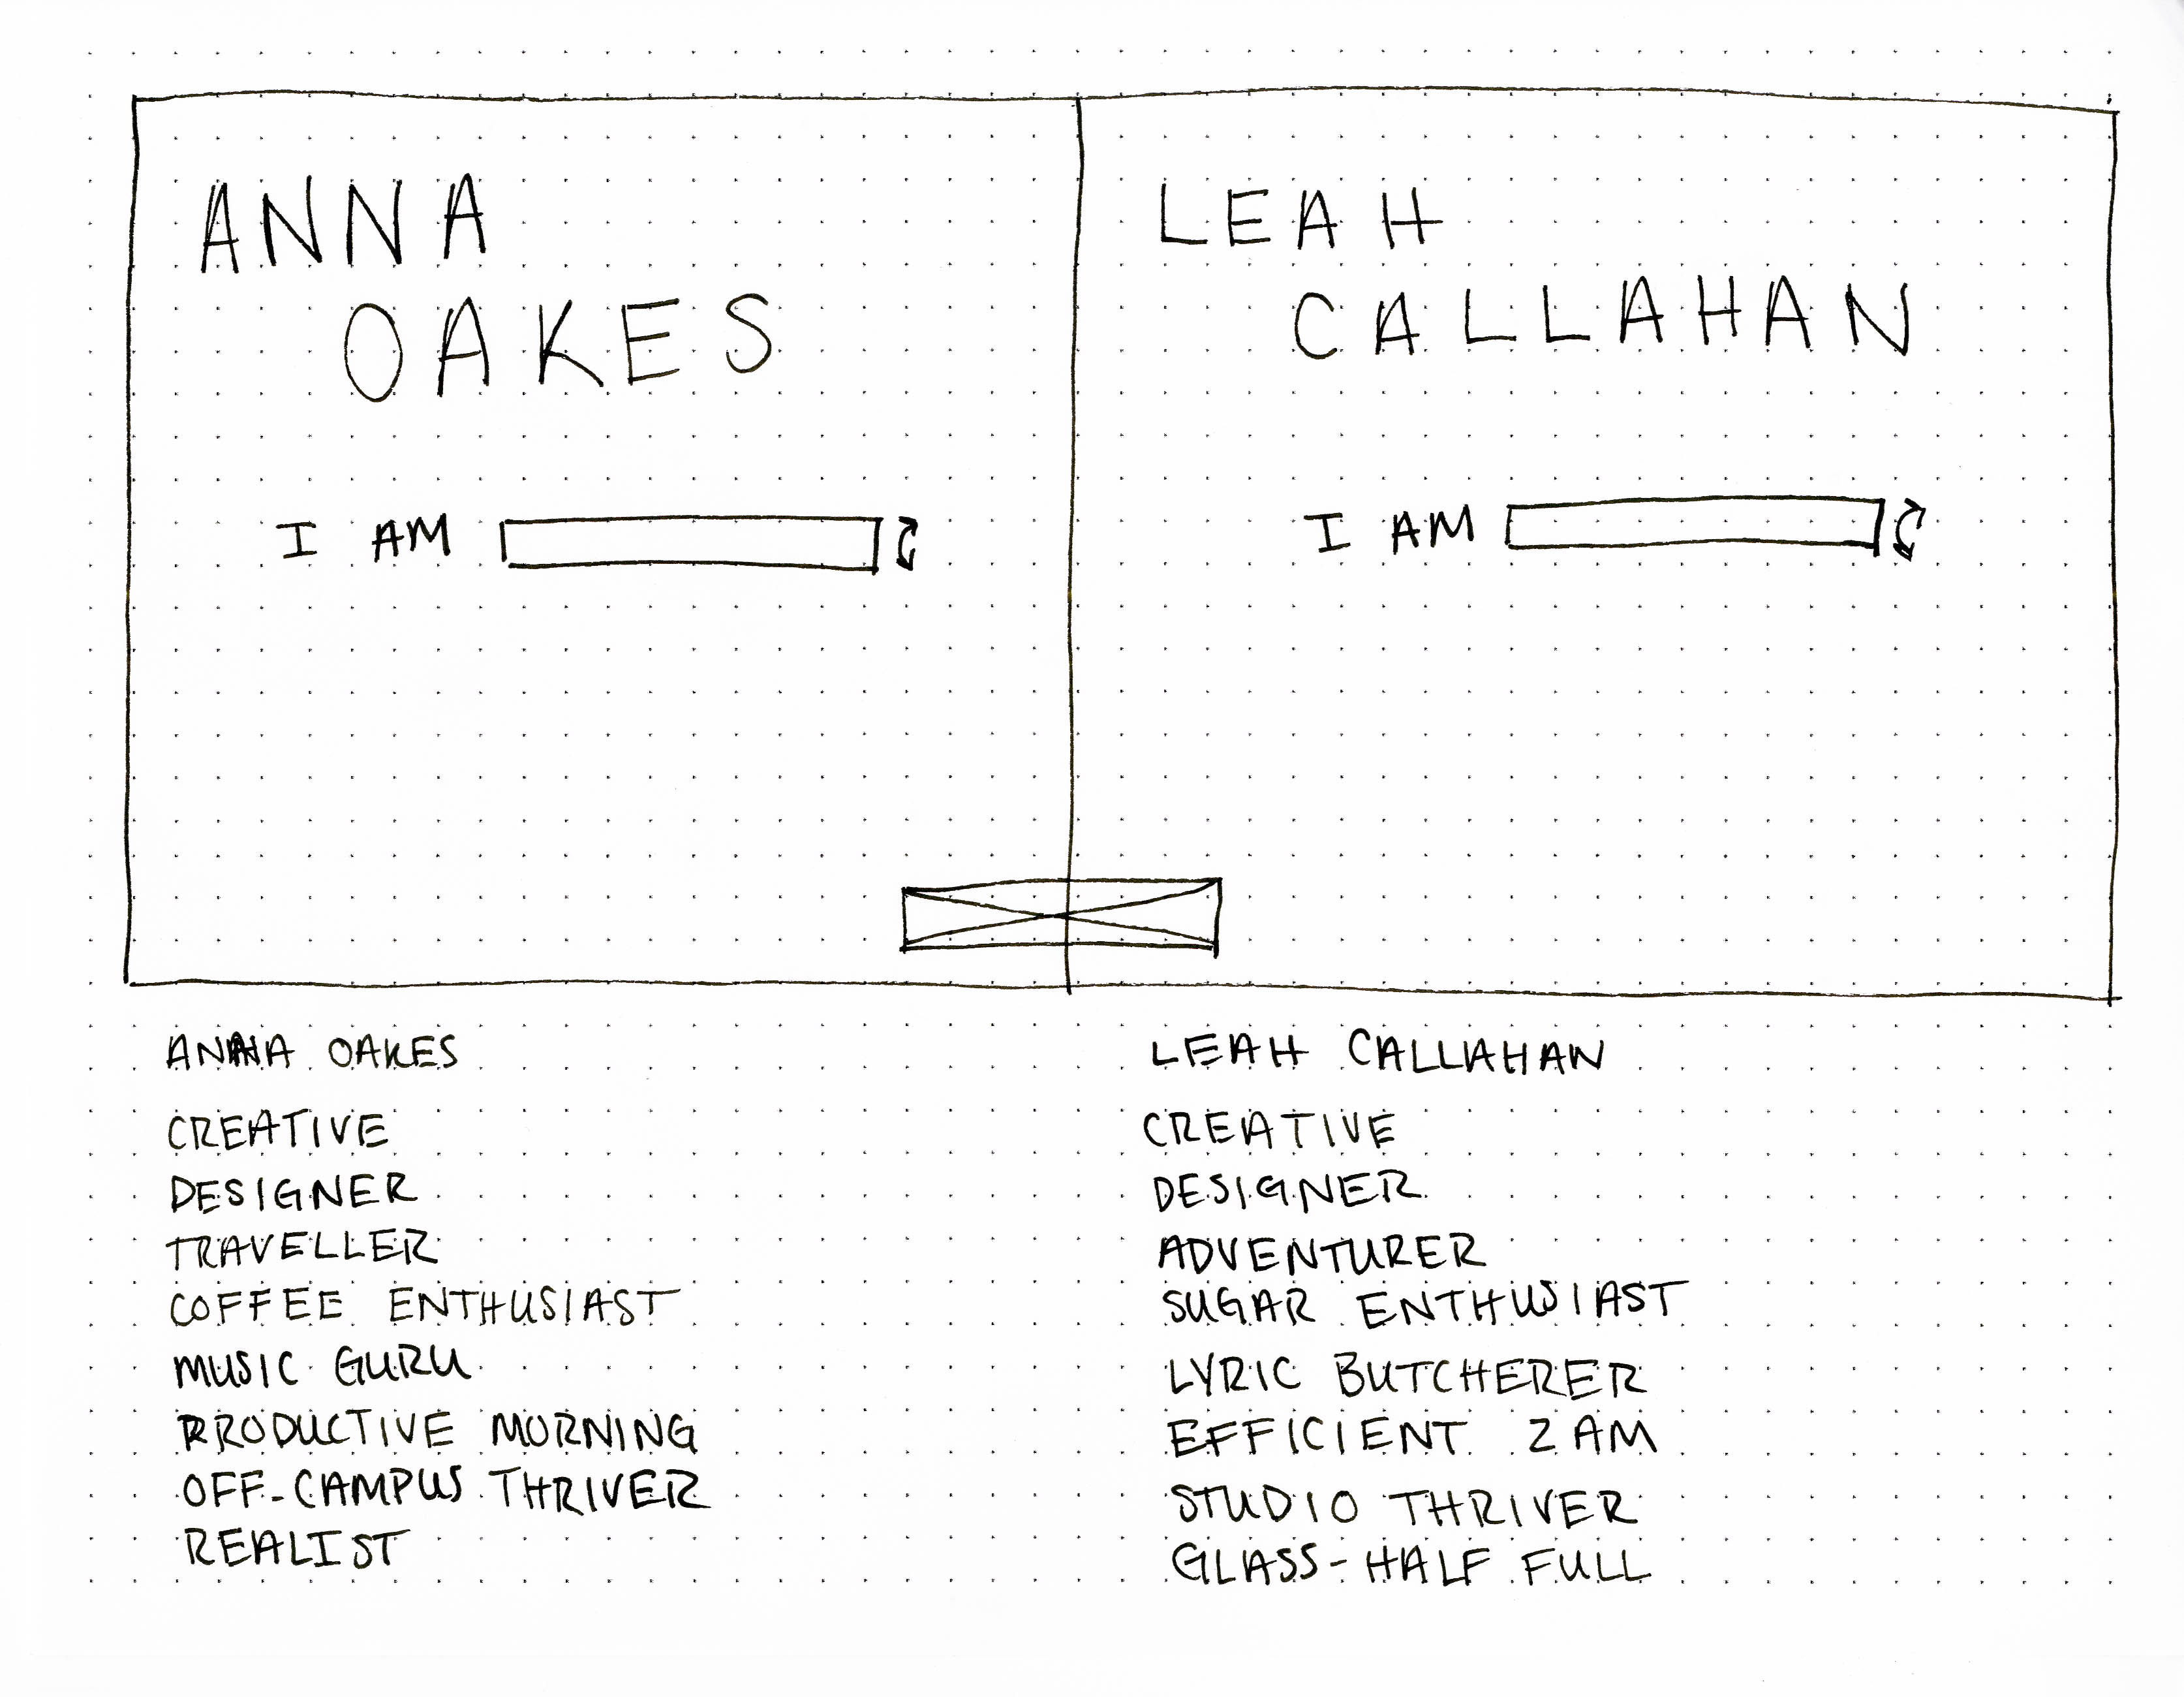 ANNA
OAKES
I AM
LEAH
CALLAHAN
I AM
ANNA OAKES
CREATIVE
DESIGNER
TRAVELLER
COFFEE ENTHUSIAST
MUSIC GURU
PRODUCTIVE MORNING
OFF-CAMPUS THRIVER
REALIST
LEAH CALLAHAN
CREATIVE
DESIGNER
ADVENTURER
SUGAR ENTHUSIAST
LYRIC BUTCHERER
EFFICIENT 2 AM
STUDIO THRIVER
GLASS-HALF FULL